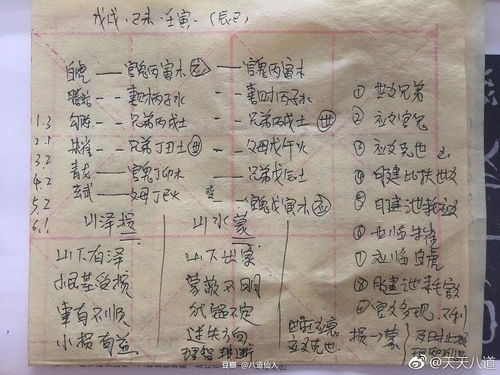 戊戌·己未·壬寅·(辰巳)
白虎 —— 官鬼丙寅木 应 —— 官鬼丙寅木
螣蛇 - - 妻财丙子水 - - 妻财丙子水 ① 世爻兄弟
勾陈 - - 兄弟丙戌土 世 - - 兄弟丙戌土 世 ② 应爻官鬼
1.3
朱雀 - - 兄弟丁丑土 - - 父母戊午火 ③ 应爻克世
2.1
青龙 —— 官鬼丁卯木 —— 兄弟戊辰土 ④ 月建比扶世爻
3.2
玄武 —— 父母丁巳火 官鬼戊寅木 应 ⑤ 日建
4.2
5.2
6.1
山泽损 山水蒙 ⑥ 世临朱雀
山下有泽 山下出蒙 ⑦ 应临白虎
根基受损 蒙蔽不明 ⑧
事有不顺 犹疑不定 ⑨ 官爻多现
小损有益 迷失方向
应爻克世
损一蒙
及时止损
豆瓣 @八道仙人
@天天八道